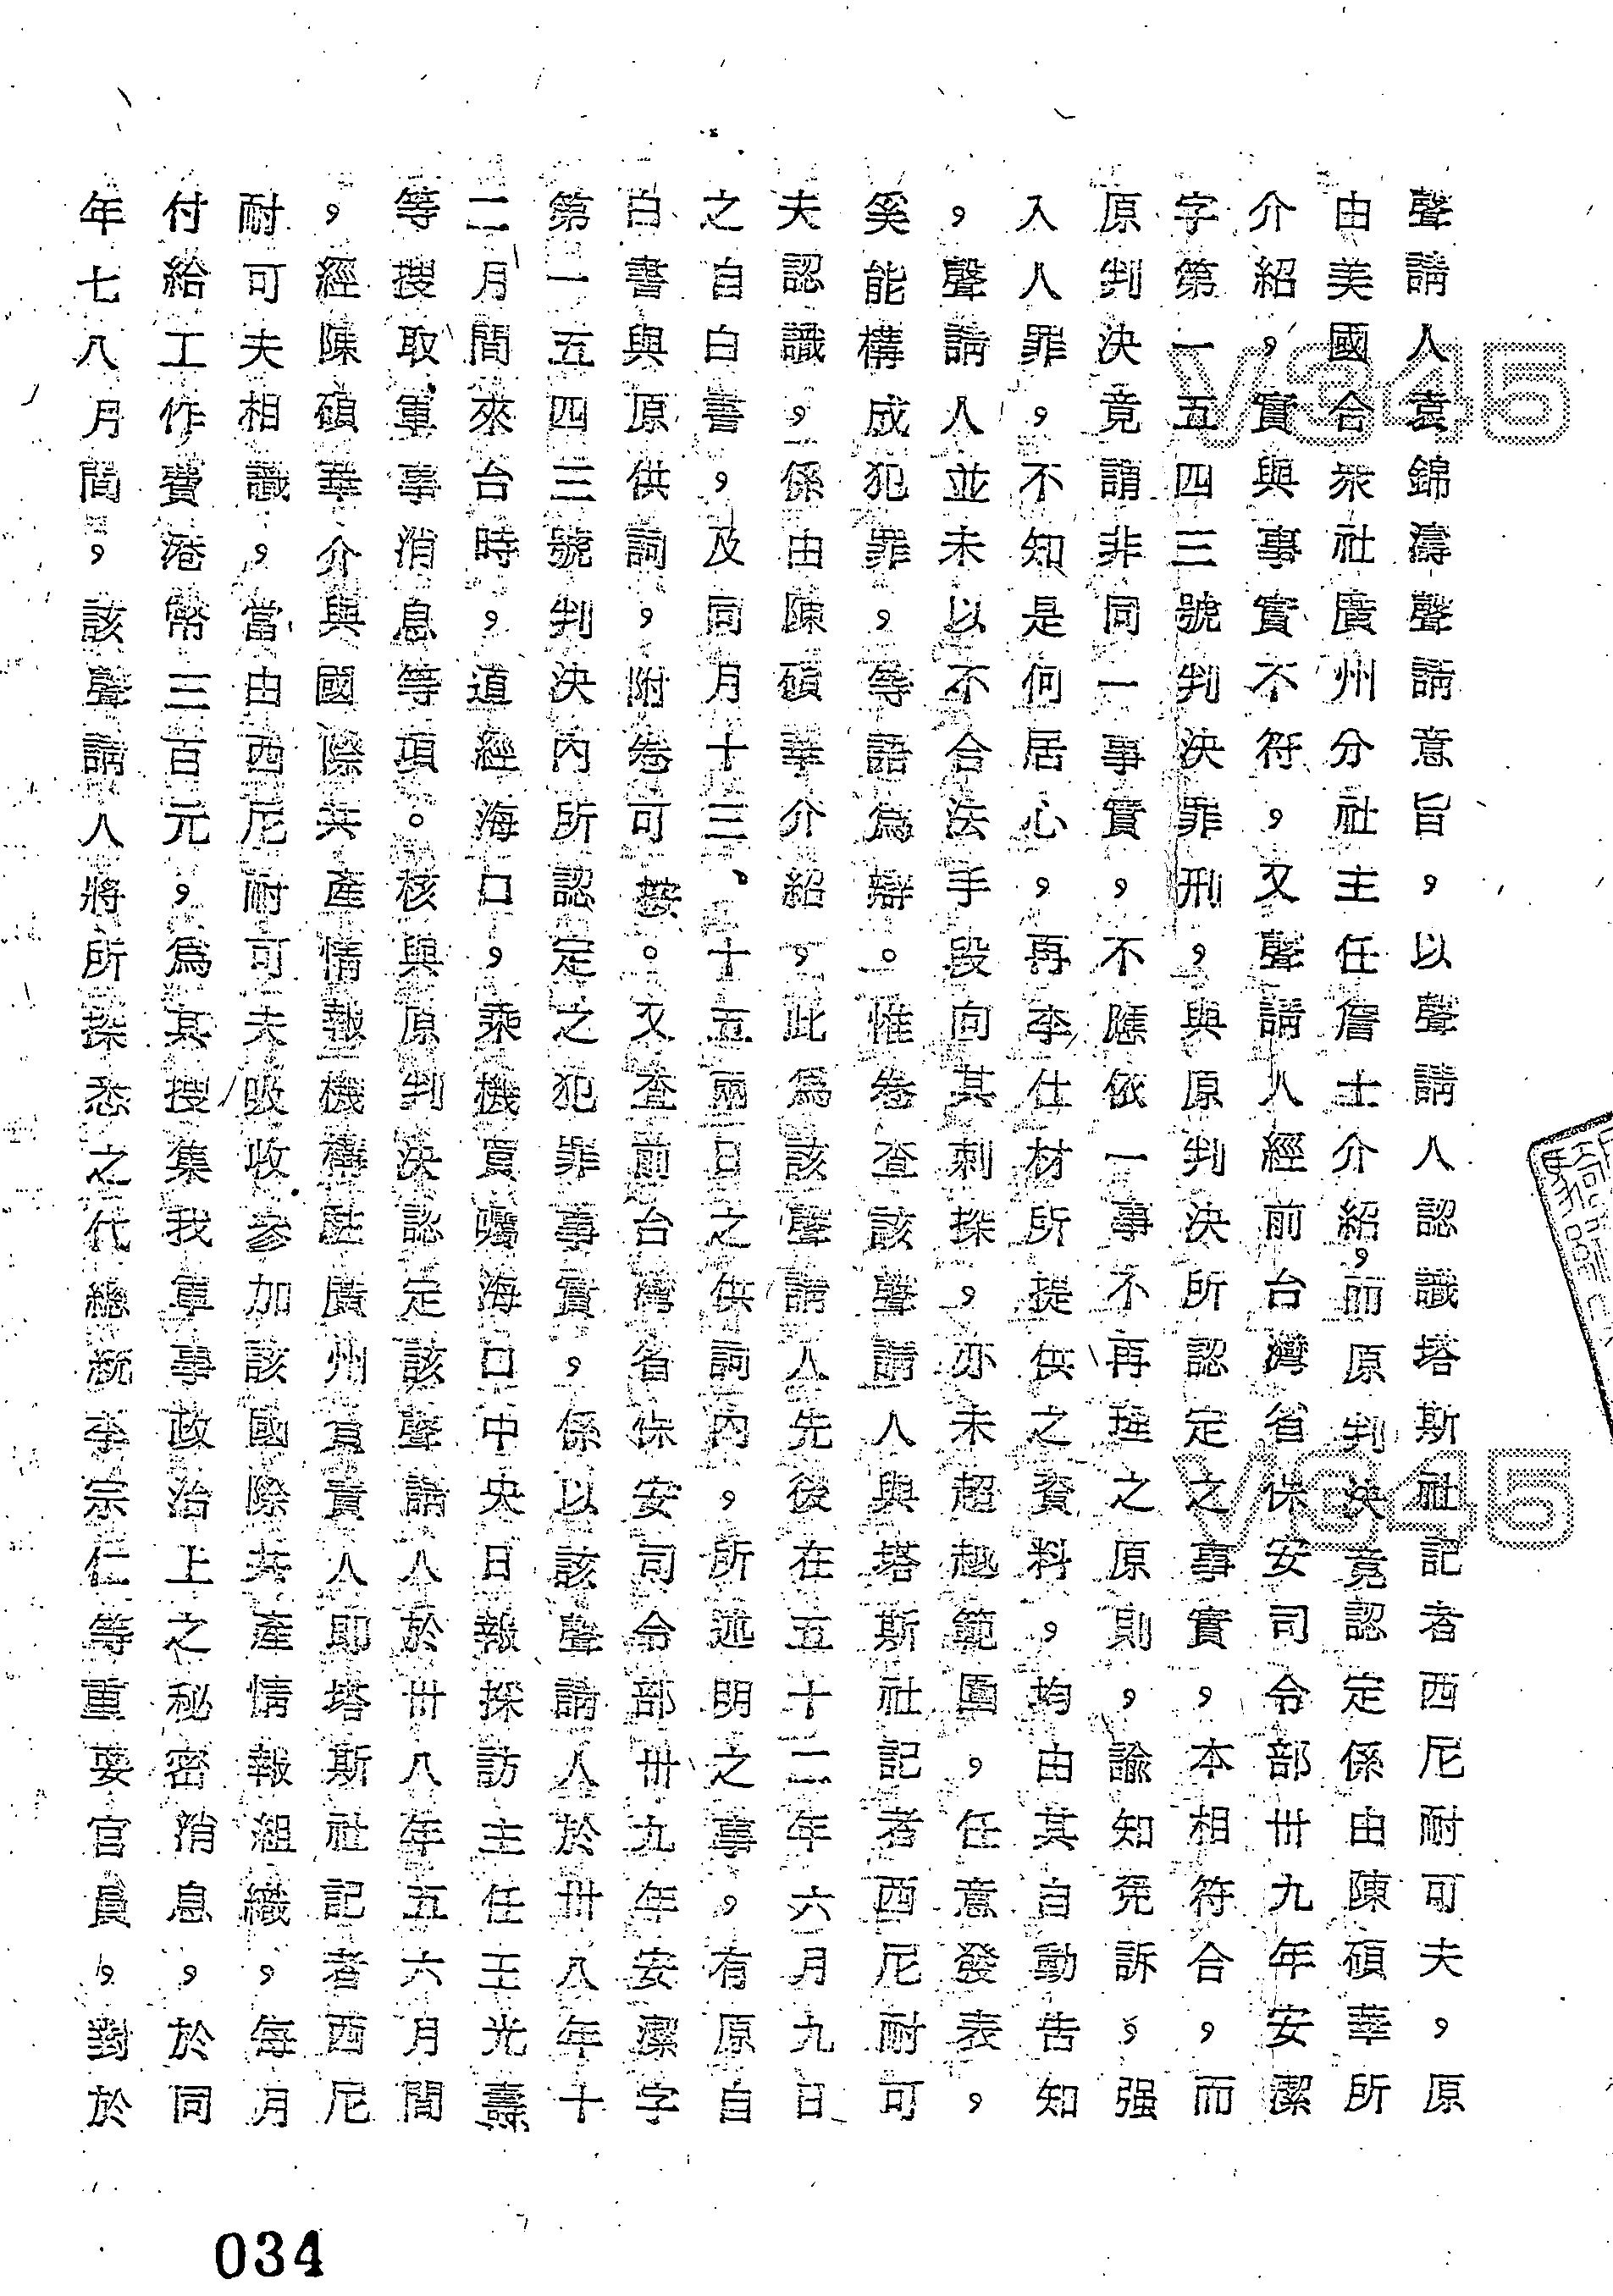 聲請人袁錦濤聲請意旨，以聲請人認識塔斯社記者西尼耐可夫，原
由美國合衆社廣州分社主任詹士介紹，而原判決竟認定係由陳碩華所
介紹，實與事實不符，又聲請人經前台灣省保安司令部卅九年安潔
字第一五四三號判決罪刑，與原判決所認定之事實，本相符合，而
原判決竟謂非同一事實，不應依一事不再理之原則，諭知免訴，强
入人罪，不知是何居心，再李仕材所提供之資料，均由其自動告知
，聲請人並未以不合法手段向其刺探，亦未超越範圍，任意發表，
奚能構成犯罪，等語爲辯。惟卷查該聲請人與塔斯社記者西尼耐可
夫認識，係由陳碩華介紹，此爲該聲請人先後在五十二年六月九日
之自白書，及同月十三、十五兩日之供詞內，所述明之事，有原自
白書與原供詞，附卷可按。又查前台灣省保安司令部卅九年安潔字
第一五四三號判決內所認定之犯罪事實，係以該聲請人於卅八年十
二月間來台時，道經海口，乘機賣囑海口中央日報採訪主任王光壽
等搜取軍事消息等項。核與原判決認定該聲請人於卅八年五六月間
，經陳碩華介與國際共產情報機構駐廣州負責人即塔斯社記者西尼
耐可夫相識，當由西尼耐可夫吸收參加該國際共產情報組織，每月
付給工作費港幣三百元，爲其搜集我軍事政治上之秘密消息，於同
年七八月間，該聲請人將所探悉之代總統李宗仁等重要官員，對於
034
V345
V345